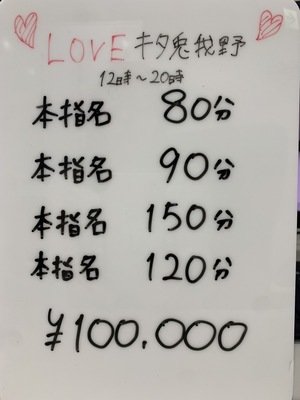 LOVE キタ兎我野
12時～20時
本指名 80分
本指名 90分
本指名 150分
本指名 120分
¥100.000